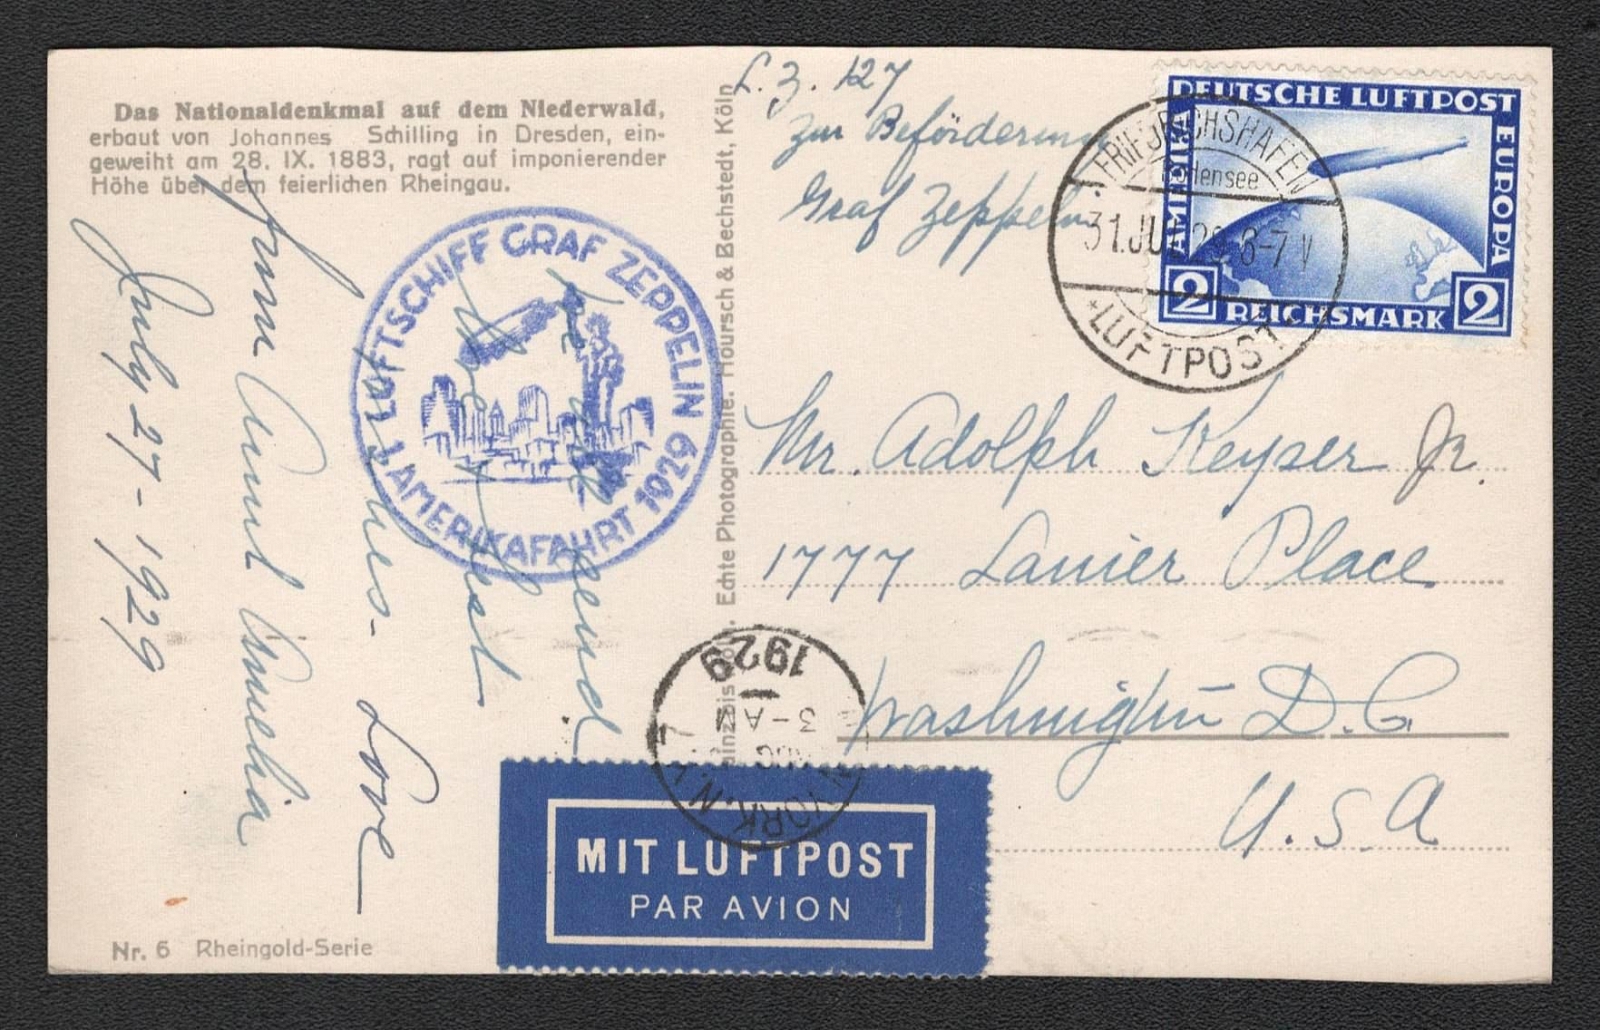 Das Nationaldenkmal auf dem Niederwald,
erbaut von Johannes Schilling in Dresden, ein-
geweiht am 28. IX. 1883, ragt auf imponierender
Höhe über dem feierlichen Rheingau.
July 27 - 1929
from Aunt Amelia
Love
LUFTSCHIFF GRAF ZEPPELIN
1. AMERIKAFAHRT 1929
Nr. 6 Rheingold-Serie
Echte Photographie. Hoursch & Bechstedt, Köln
L.Z. 127
zur Beförderung
Graf Zeppelin
DEUTSCHE LUFTPOST
EUROPA
AMERIKA
2 REICHSMARK 2
FRIEDRICHSHAFEN
31.JUL 29 6-7 V
* LUFTPOST *
Mr. Adolph Keyser Jr.
1777 Lanier Place
Washington D.C.
U.S.A
YORK, N.Y.
AUG
3-AM
1929
MIT LUFTPOST
PAR AVION